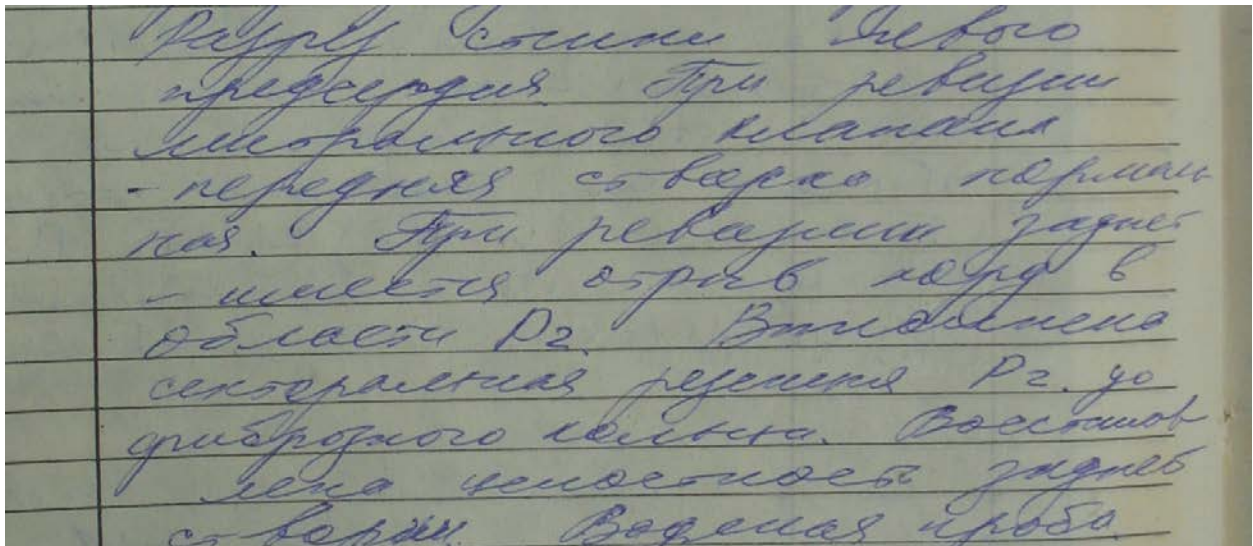 Разрез стенки левого
предсердия При ревизии
митрального клапана
- передняя створка нормаль
ная. При ревизии задней
- имеется отрыв хорд в
области P2. Выполнена
секторальная резекция P2. до
фиброзного кольца. Восстанов
лена целостность задней
створки. Водная проба